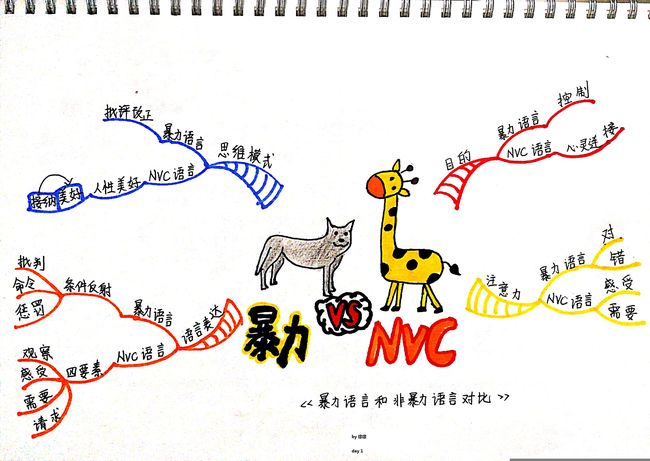 目的
暴力语言
控制
NVC 语言
心灵连接
注意力
暴力语言
对
错
NVC 语言
感受
需要
语言表达
暴力语言
条件反射
批判
命令
惩罚
NVC 语言
四要素
观察
感受
需要
请求
思维模式
暴力语言
找评改正
NVC 语言
人性美好
接纳
美好
暴力
VS
NVC
<<暴力语言和非暴力语言对比>>
day 1